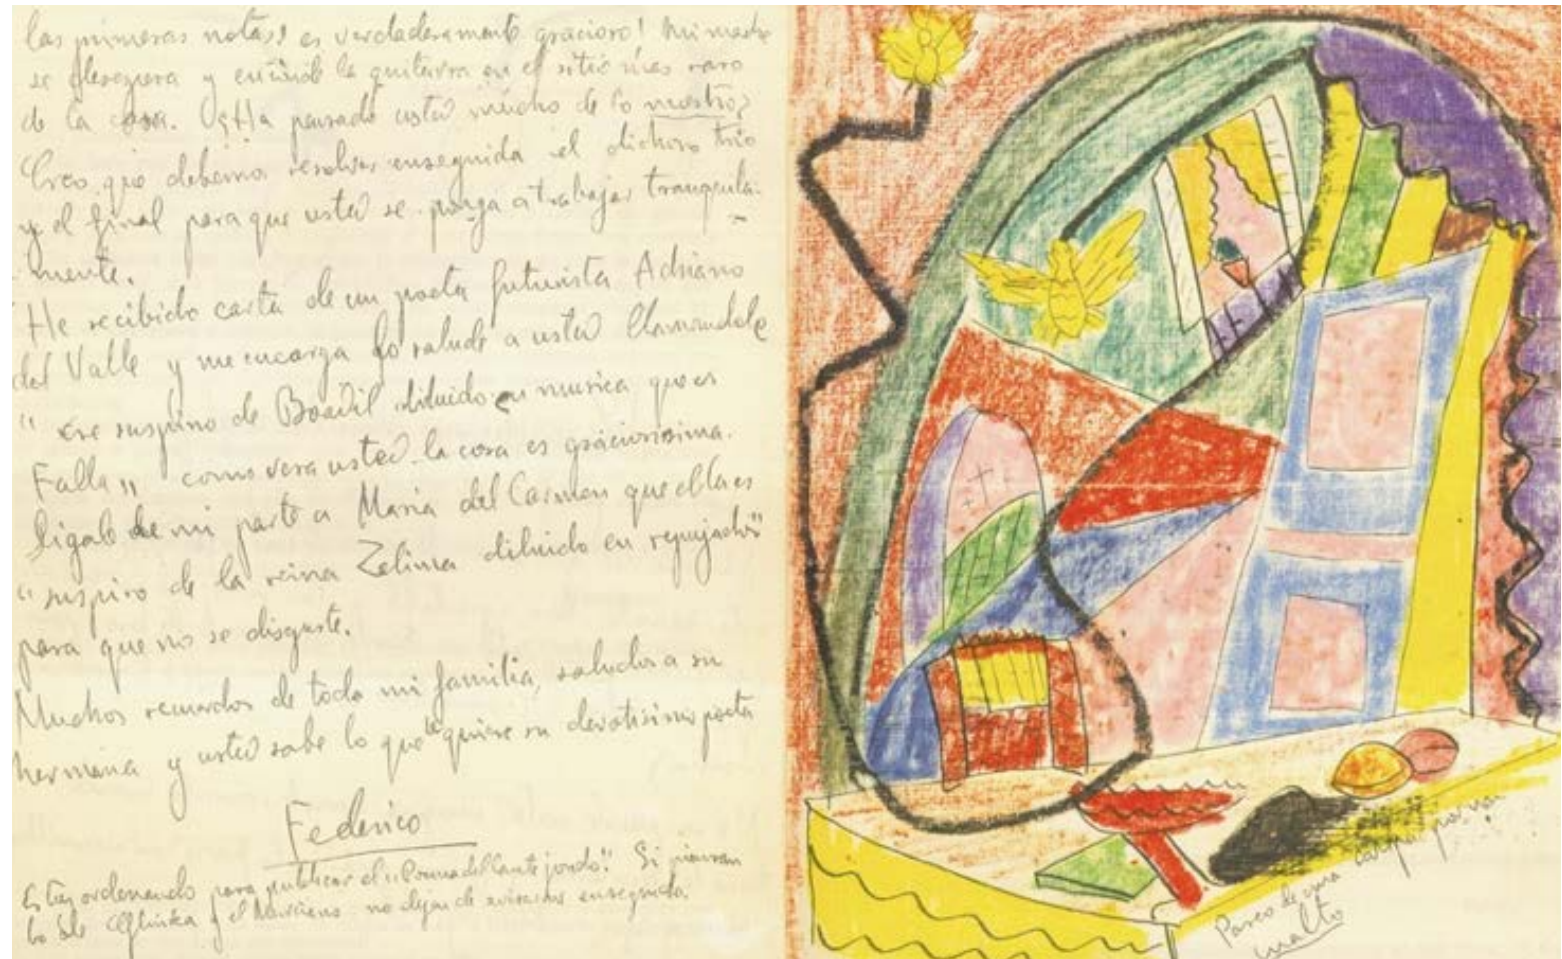 las primeras notas! es verdaderamente gracioso! Mi madre
se desespera y esconde la guitarra en el sitio mas raro
de la casa. ¿Ha pensado usted mucho de lo nuestro?
Creo que debemos resolver enseguida el dichoso trio
y el final para que usted se ponga a trabajar tranquila-
mente.
He recibido carta de un poeta futurista Adriano
del Valle y me encarga lo salude a usted llamandole
"ese suspiro de Boadil diluido en musica que es
Falla" como vera usted la cosa es graciosisima.
Digale de mi parte a Maria del Carmen que ella es
"suspiro de la reina Zelima diluido en repujados"
para que no se disguste.
Muchos recuerdos de toda mi familia, saludos a su
hermana y usted sabe lo que le quiere su devotisimo poeta
Federico
Estoy ordenando para publicar el "Poema del Cante jondo". Si piensan
lo de Glinka y el Murciano no dejen de avisarme enseguida.
Paseo de una